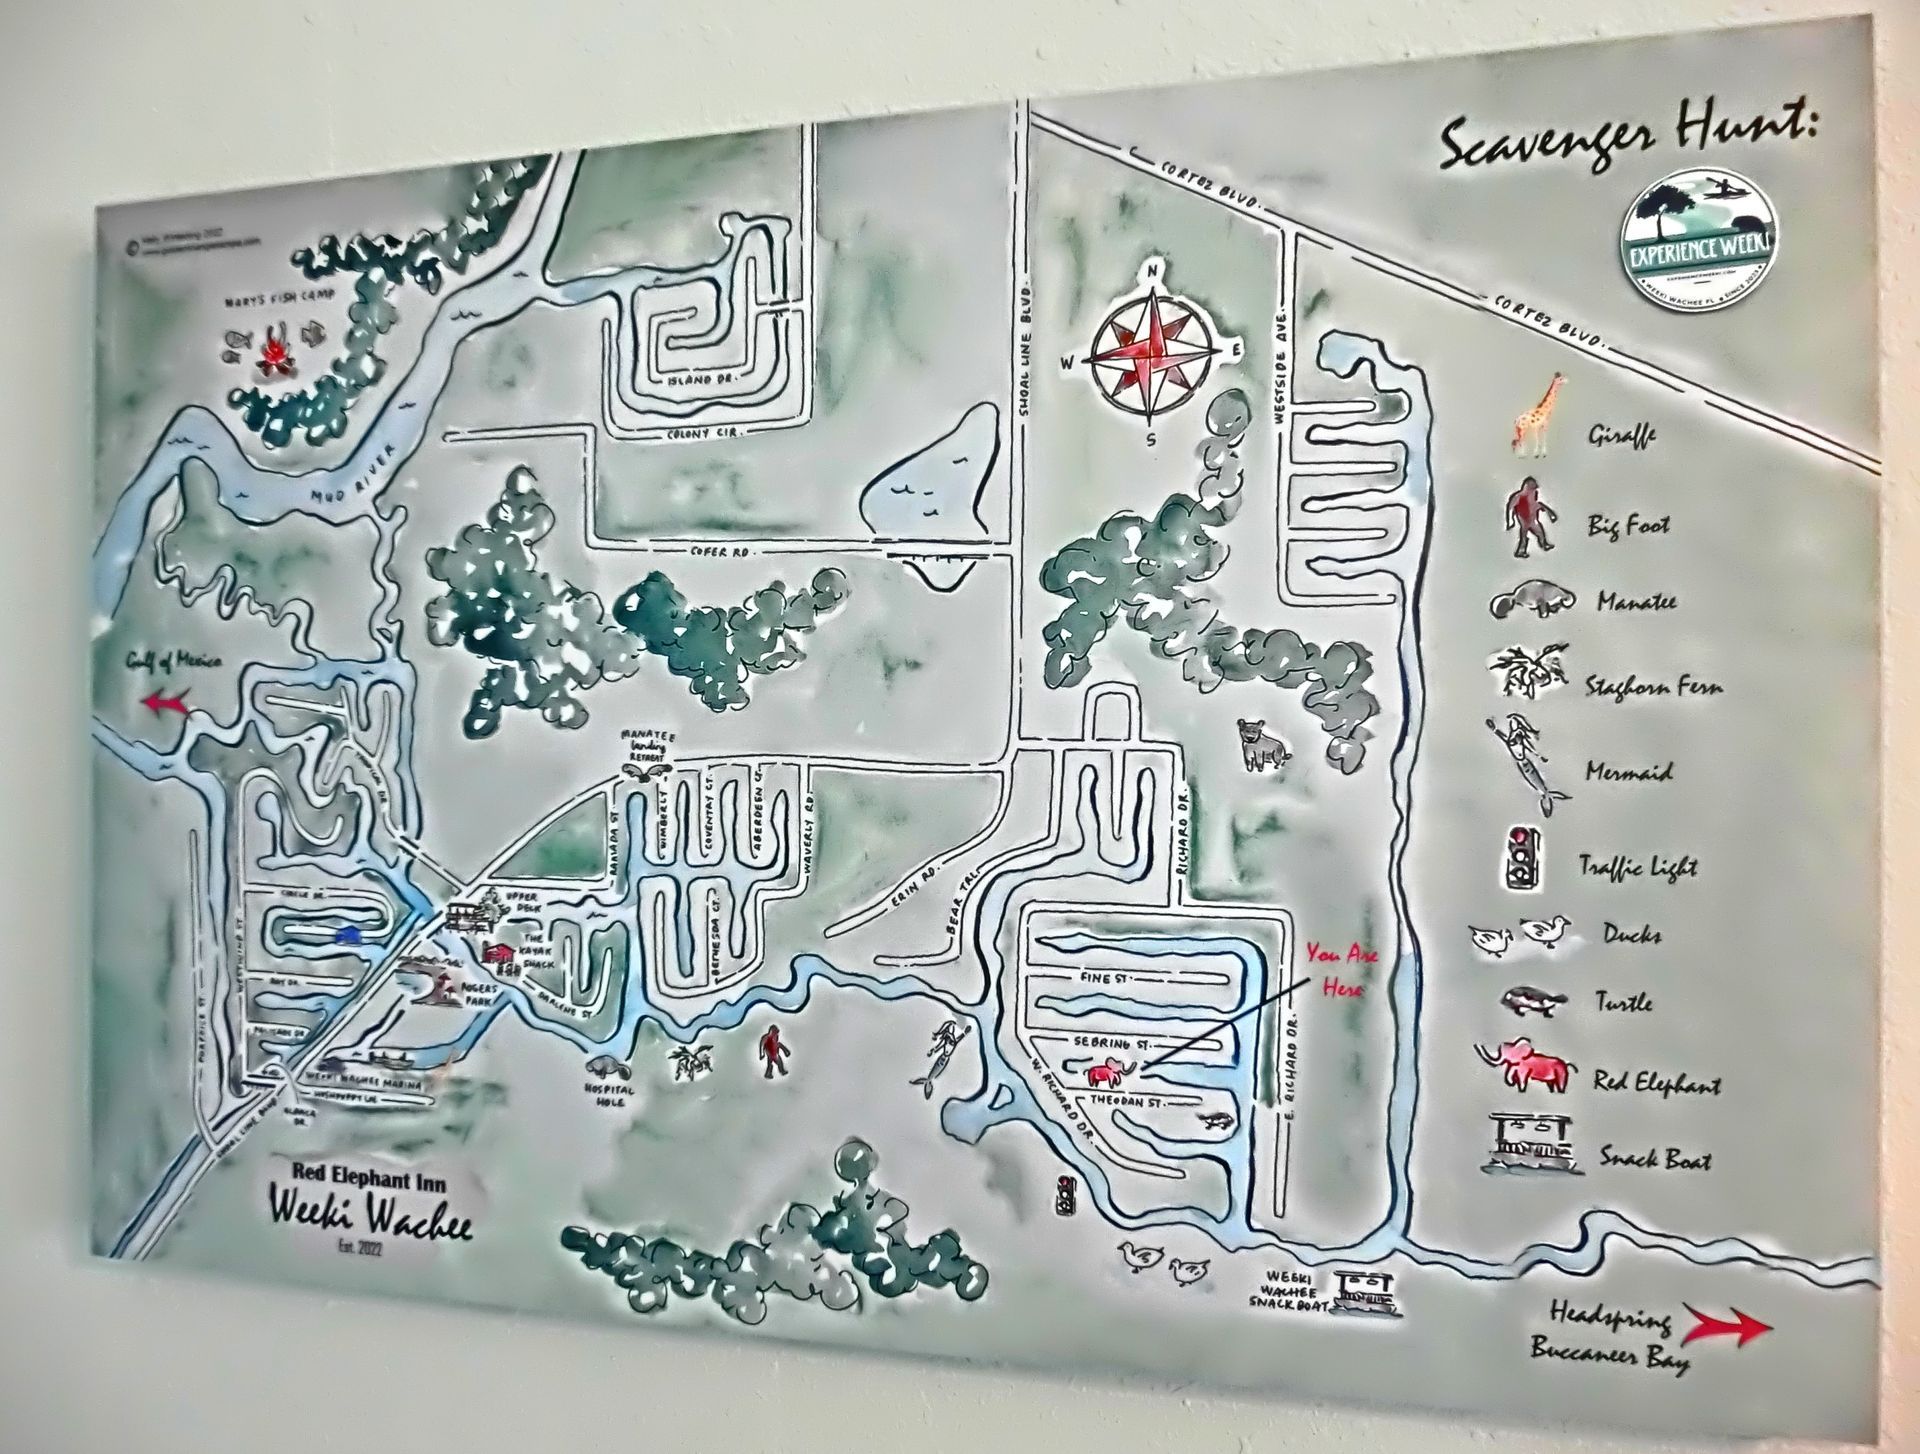 Scavenger Hunt:
EXPERIENCE WEEKI
EXPERIENCEWEEKI.COM
WEEKI WACHEE FL
Giraffe
Big Foot
Manatee
Staghorn Fern
Mermaid
Traffic Light
Ducks
Turtle
Red Elephant
Snack Boat
Headspring
Buccaneer Bay
MARY'S FISH CAMP
MUD RIVER
Gulf of Mexico
ISLAND DR.
COLONY CIR.
COFER RD.
SHOAL LINE BLVD.
CORTEZ BLVD.
CORTEZ BLVD.
WESTSIDE AVE.
N
E
S
W
MANATEE
landing
RETREAT
WIMBERLY
COVENTRY CT.
ABERDEEN CT.
WAVERLY RD.
BETHESDA CT.
ERIN RD.
BEAR TRL.
RICHARD DR.
E. RICHARD DR.
W. RICHARD DR.
SEBRING ST.
THEODAN ST.
You Are
Here
UPPER
DECK
THE
KAYAK
SHACK
ROGERS
PARK
DARLENE ST.
CIRCLE DR.
WEEKI WACHEE MARINA
SHOAL LINE BLVD
HOSPITAL
HOLE
WEEKI
WACHEE
SNACK BOAT
Red Elephant Inn
Weeki Wachee
Est. 2022